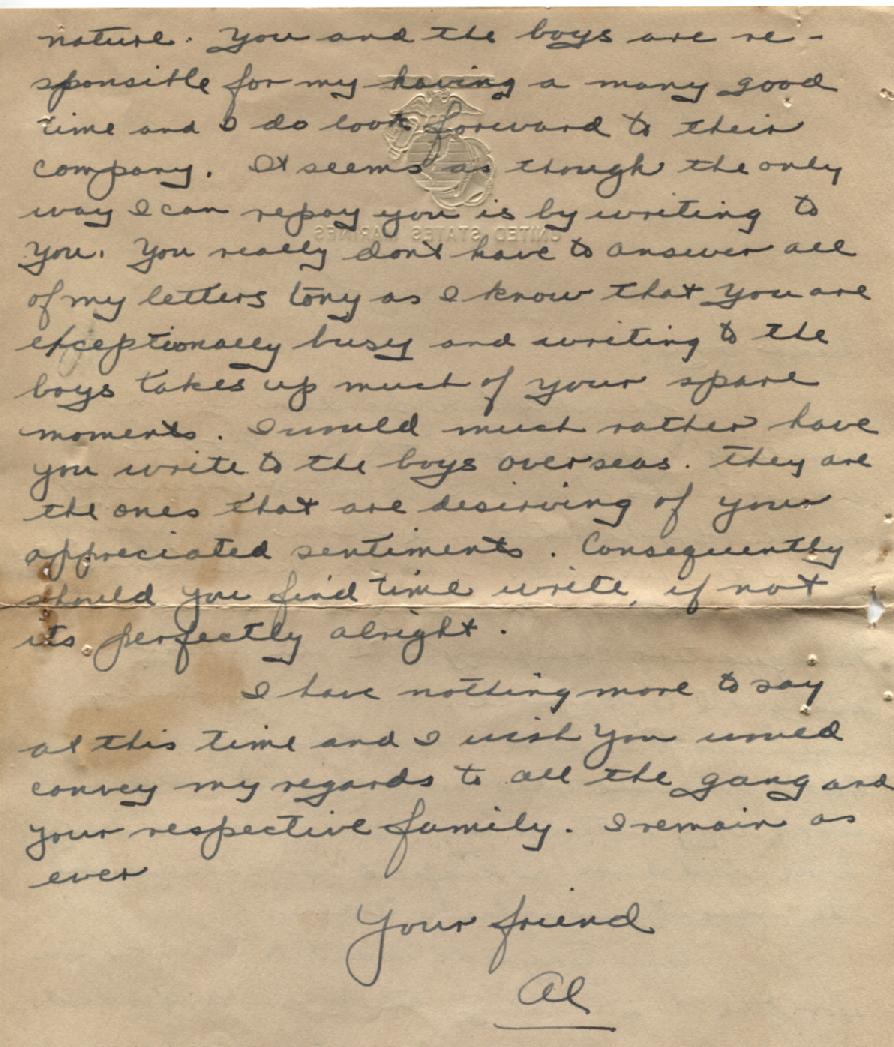 nature. You and the boys are re-
sponsible for my having a many good
time and I do look forward to their
company. It seems as though the only
UNITED STATES MARINES
way I can repay you is by writing to
you. You really don't have to answer all
of my letters Tony as I know that you are
exceptionally busy and writing to the
boys takes up much of your spare
moments. I would much rather have
you write to the boys overseas. They are
the ones that are desirving of your
appreciated sentiments. Consequently
should you find time write, if not
its perfectly alright.
I have nothing more to say
at this time and I wish you would
convey my regards to all the gang and
your respective family. I remain as
ever
Your friend
Al